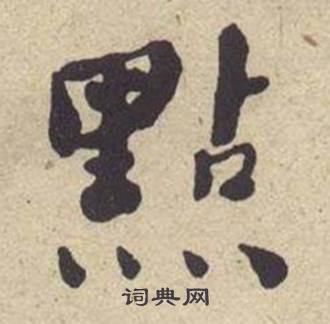 點
词典网